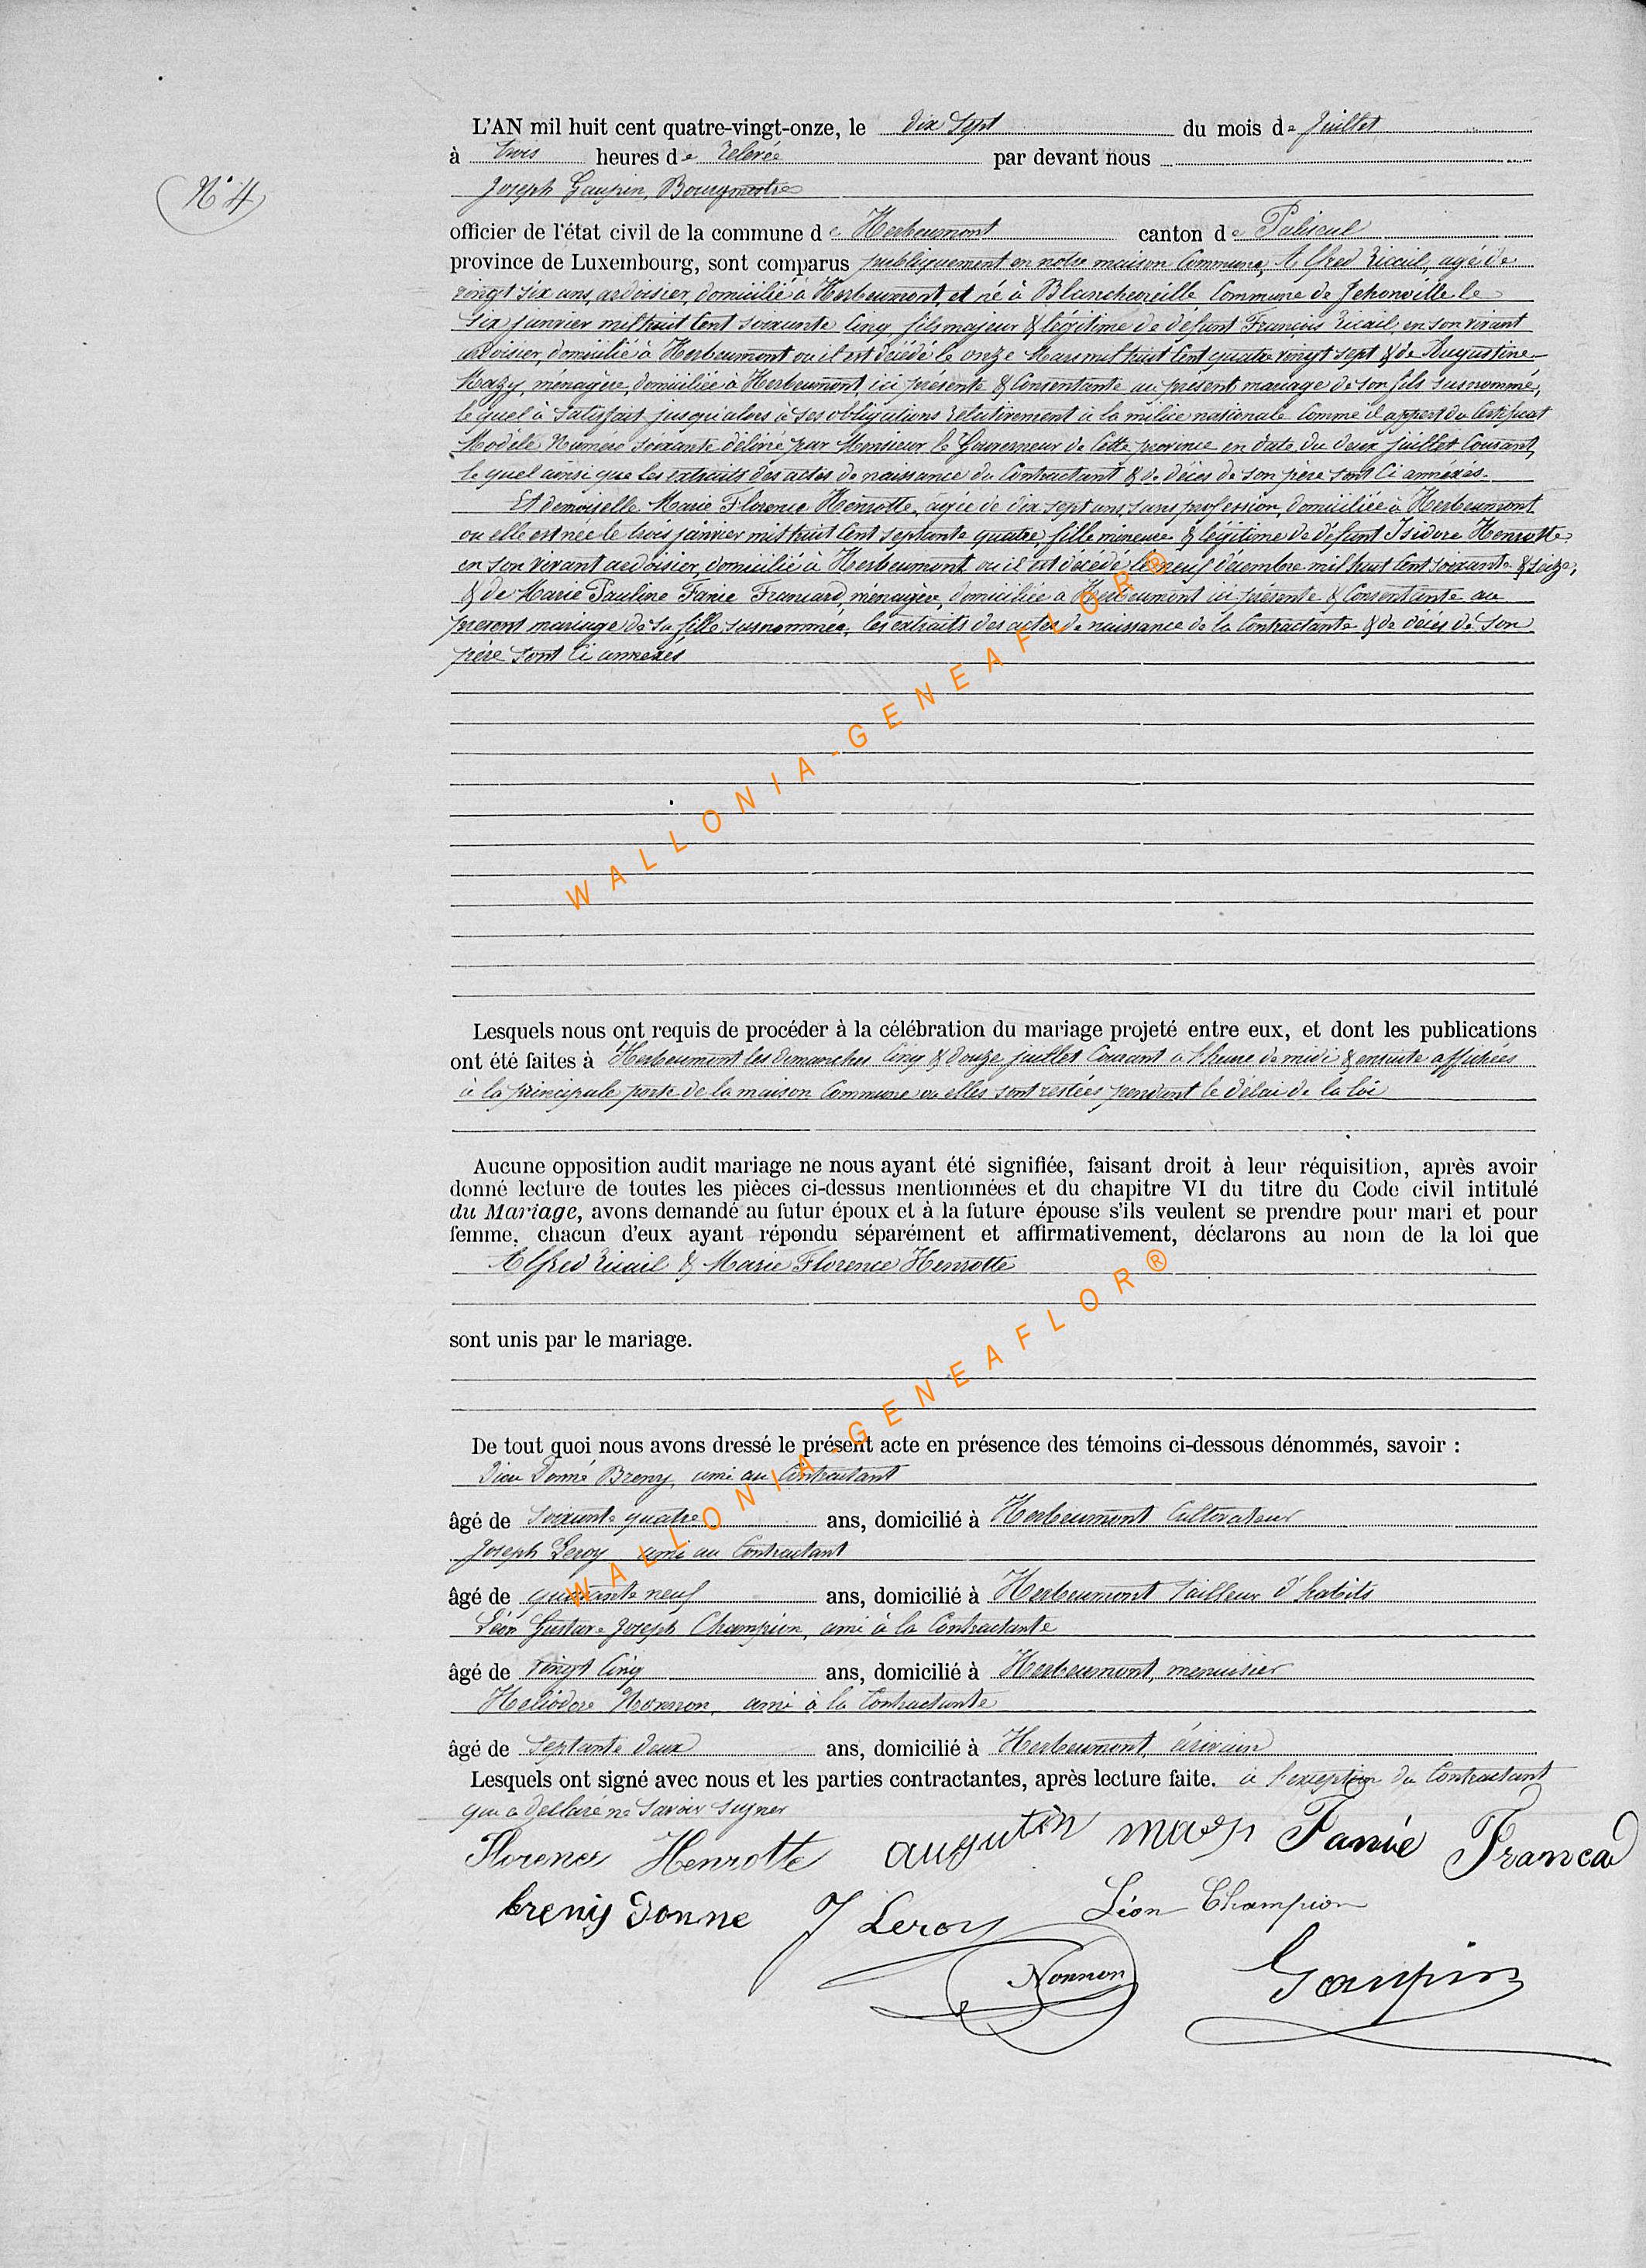 N° 4
L'AN mil huit cent quatre-vingt-onze, le dix sept du mois de Juillet
à trois heures de relevée par devant nous
Joseph Gaupin, Bourgmestre
officier de l'état civil de la commune de Herbeumont canton de Paliseul
province de Luxembourg, sont comparus publiquement en notre maison Commune, Alfred Ricail, agé de
vingt six ans, ardoisier, domicilié à Herbeumont, et né à Blancheoreille Commune de Jehonville le
six janvier mil huit Cent soixante Cinq, fils majeur & légitime de défunt François Ricail, en son vivant
ardoisier, domicilié à Herbeumont ou il est décédé le onze Mars mil huit Cent quatre vingt sept & de Augustine
Mazy, ménagère, domiciliée à Herbeumont, ici présente & Consentante au présent mariage de son fils susnommé,
lequel à satisfait jusqu'alors à ses obligations relativement à la milice nationale Comme il appert du Certificat
Modèle Numéro soixante délivré par Monsieur le Gouverneur de Cette province en date du deux juillet Courant,
le quel ainsi que les extraits des actes de naissance du Contractant & de décès de son père sont Ci annéxés.
Et demoiselle Marie Florence Henrotte, agée de dix sept ans, sans profession, domiciliée à Herbeumont
ou elle est née le trois janvier mil huit Cent septante quatre, fille mineure & légitime de défunt Isidore Henrotte
en son vivant ardoisier, domicilié à Herbeumont ou il est décédé le neuf décembre mil huit Cent soixante & seize,
& de Marie Pauline Fanie Francard, ménagère, domiciliée à Herbeumont ici présente & Consentante au
présent mariage de sa fille susnommée, les extraits des actes de naissance de la Contractante & de décès de son
père sont Ci annexés
Lesquels nous ont requis de procéder à la célébration du mariage projeté entre eux, et dont les publications
ont été faites à Herbeumont les dimanches Cinq & douze juillet Courant à l'heure de midi & ensuite affichées
à la principale porte de la maison Commune ou elles sont restées pendant le délai de la loi
Aucune opposition audit mariage ne nous ayant été signifiée, faisant droit à leur réquisition, après avoir
donné lecture de toutes les pièces ci-dessus mentionnées et du chapitre VI du titre du Code civil intitulé
du Mariage, avons demandé au futur époux et à la future épouse s'ils veulent se prendre pour mari et pour
femme, chacun d'eux ayant répondu séparément et affirmativement, déclarons au nom de la loi que
Alfred Ricail & Marie Florence Henrotte
sont unis par le mariage.
De tout quoi nous avons dressé le présent acte en présence des témoins ci-dessous dénommés, savoir :
Dieu Donné Breny, ami au Contractant
âgé de soixante quatre ans, domicilié à Herbeumont Cultivateur
Joseph Leroy ami au Contractant
âgé de quarante neuf ans, domicilié à Herbeumont tailleur d'habits
Léon Gustave Joseph Champion, ami à la Contractante
âgé de vingt Cinq ans, domicilié à Herbeumont, menuisier
Héliodore Nonnon, ami à la Contractante
âgé de septante deux ans, domicilié à Herbeumont, écrivain
Lesquels ont signé avec nous et les parties contractantes, après lecture faite. à l'exception du Contractant
qui a déclaré ne savoir signer
Florence Henrotte augutin Fanie Francad
breny donne J Leroy Léon Champion
Nonnon Gaupin
WALLONIA-GENEAFLOR®
WALLONIA-GENEAFLOR®